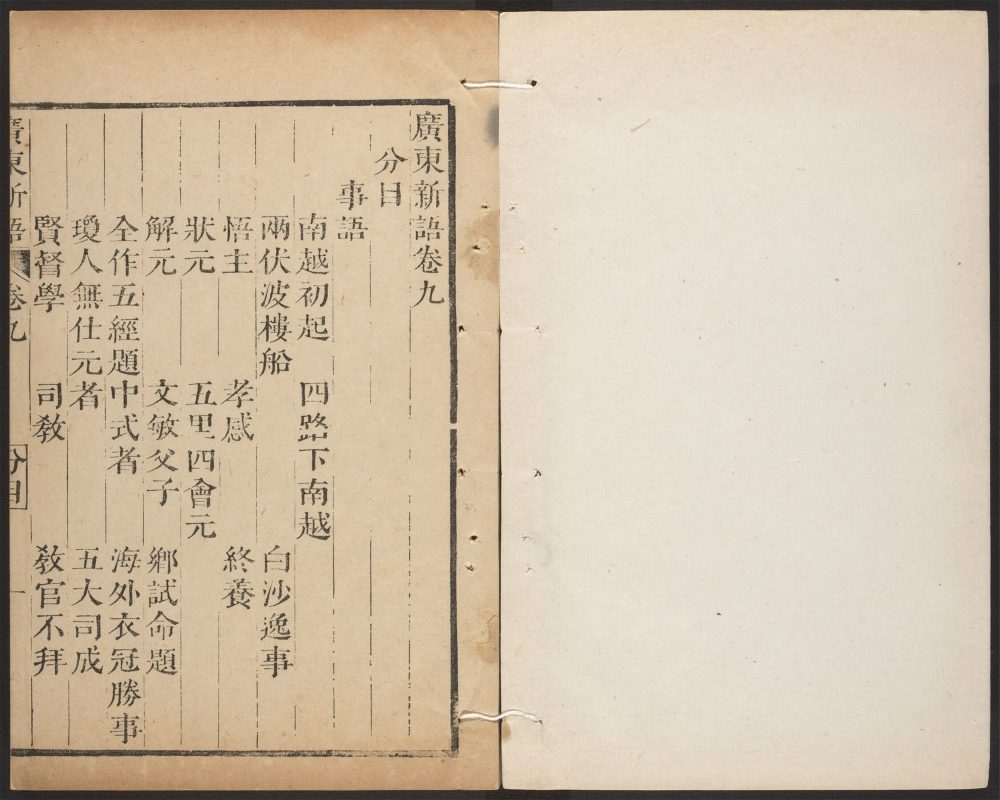 廣東新語卷九
分目
事語
南越初起 四路下南越
兩伏波樓船 白沙逸事
悟主 孝感 終養
狀元 五里四會元
解元 文敏父子 鄉試命題
全作五經題中式者 海外衣冠勝事
瓊人無仕元者 五大司成
賢督學 司敎 敎官不拜
廣東新語 卷九 分目 一